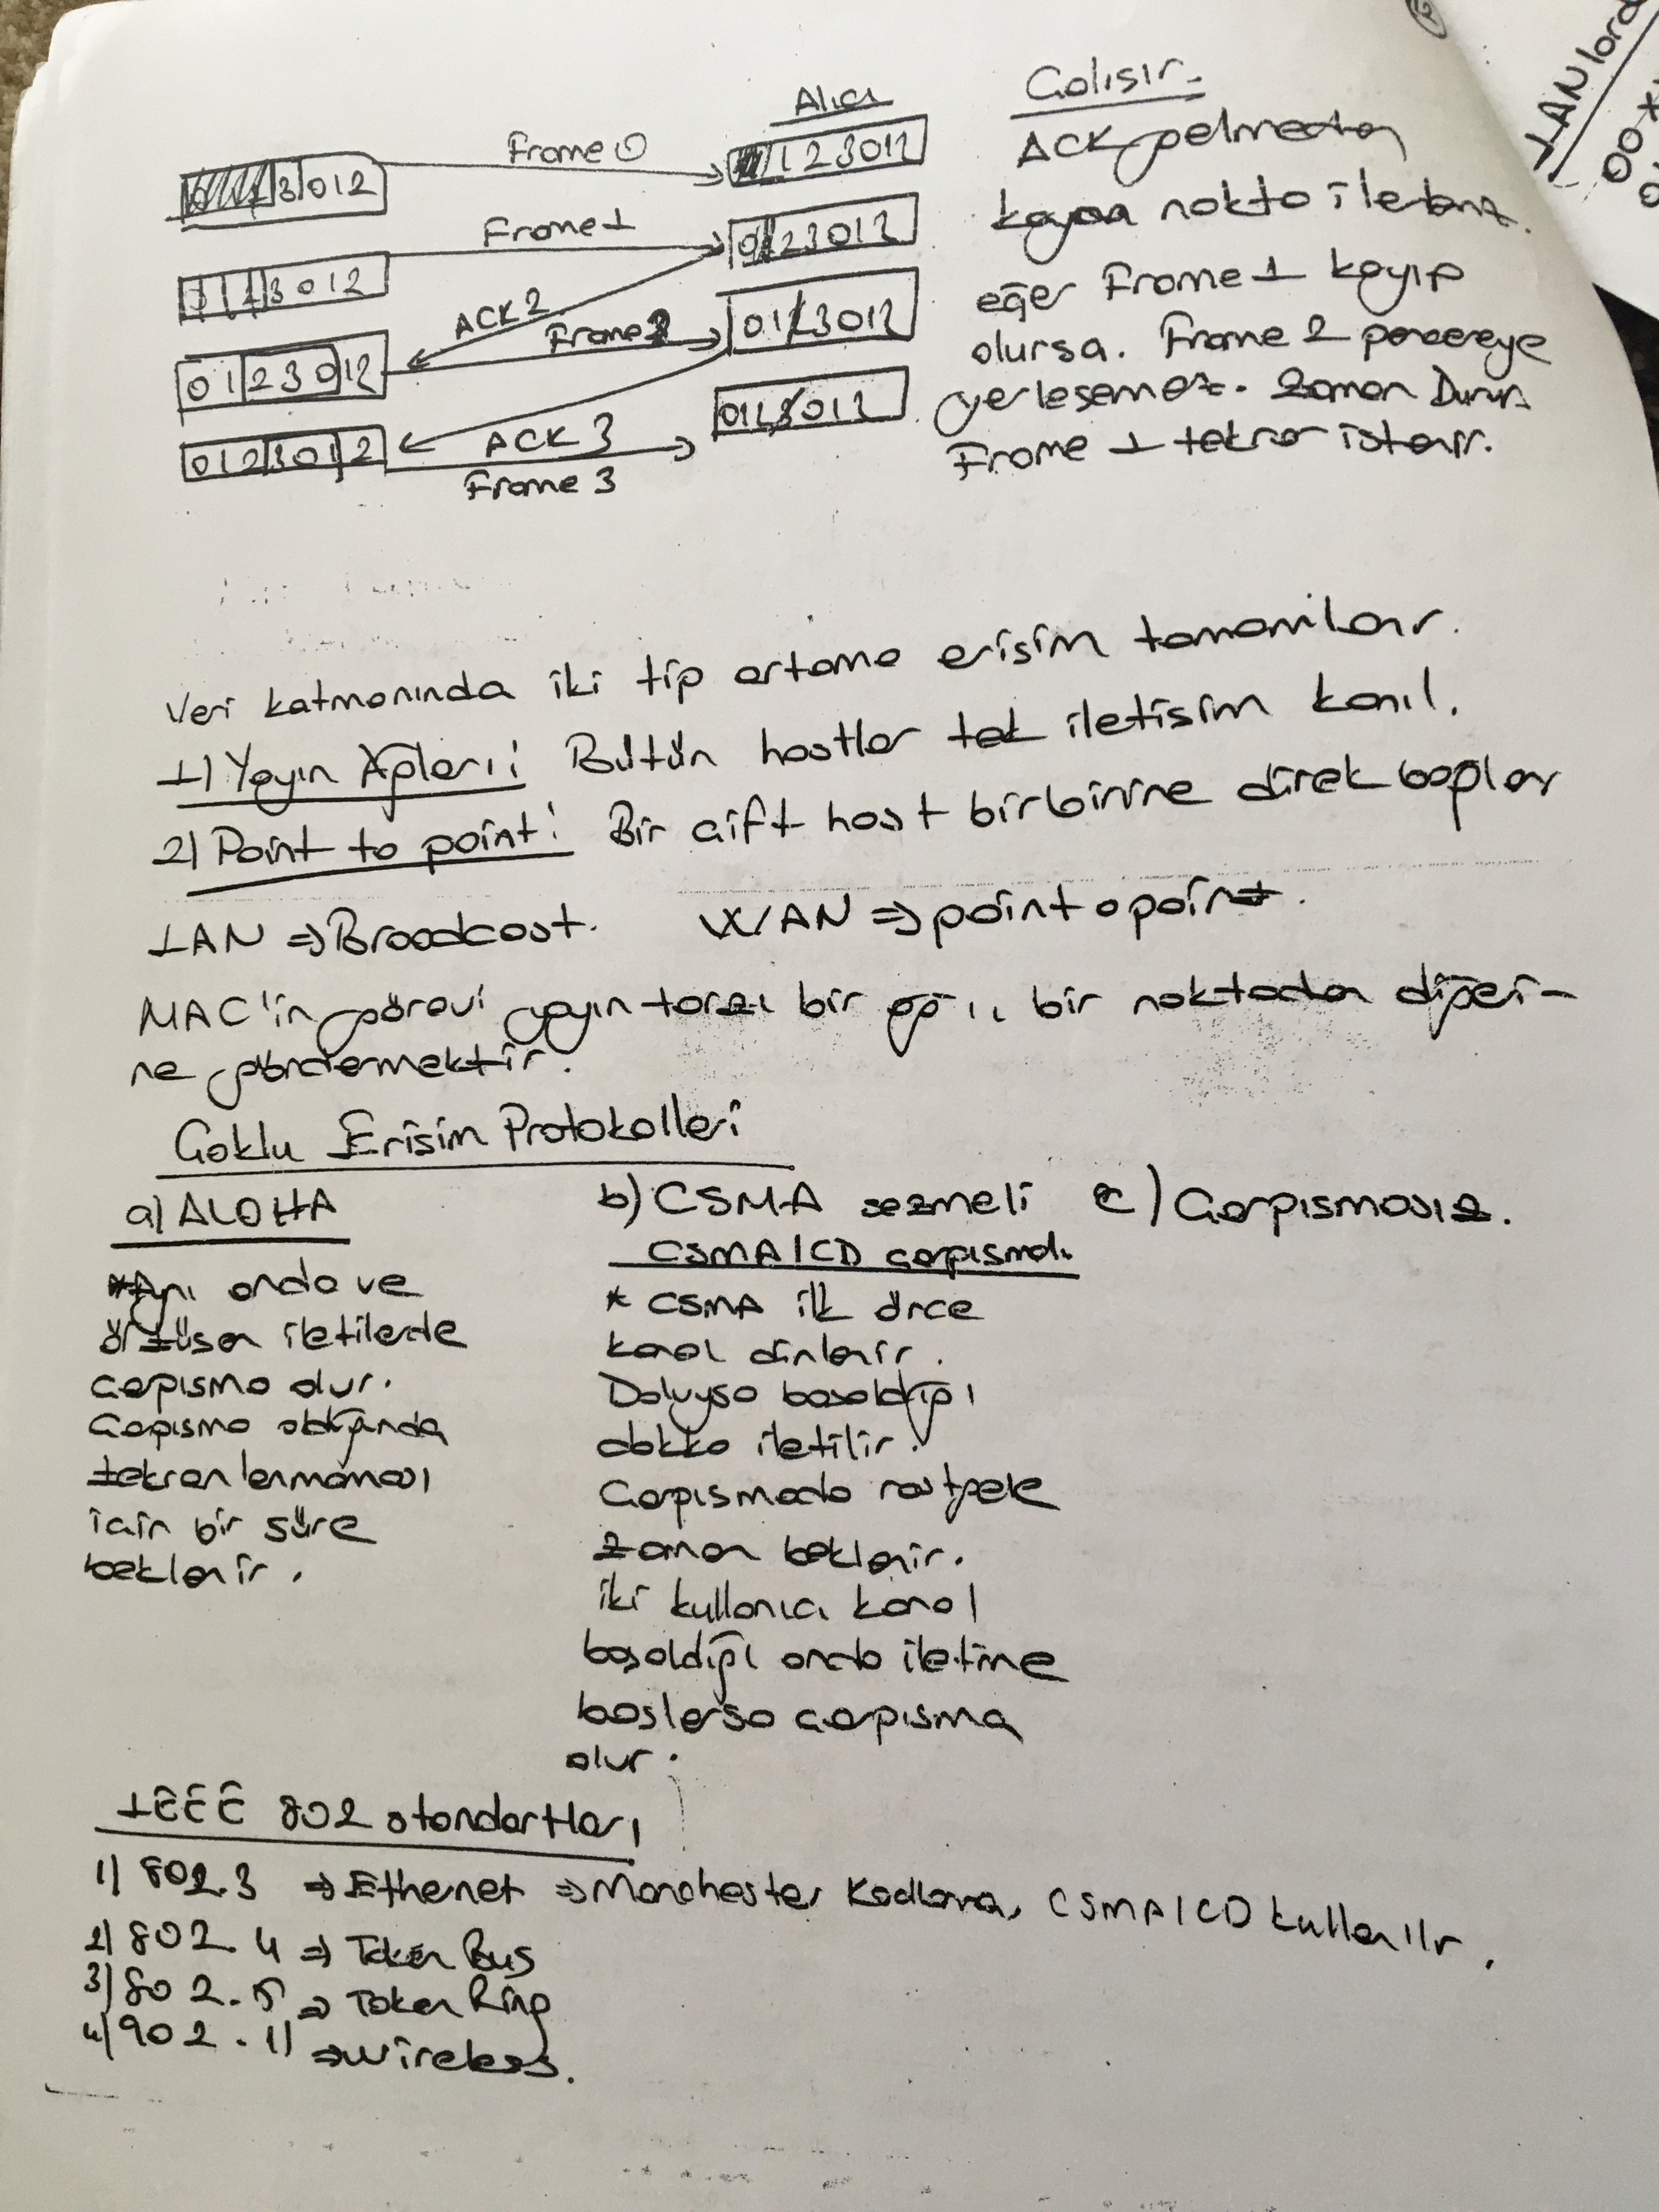 Alıcı
Frame 0
3 0 1 2
1 2 3 0 1 2
Frame 1
3 0 1 2
0 2 3 0 1 2
ACK 2
Frame 2
0 1 2 3 0 1 2
0 1 3 0 1 2
ACK 3
Frame 3
0 1 2 3 0 1 2
0 1 3 0 1 2
Çalışır.
ACK gelmeden
nokta iletemez.
eğer Frame 1 kayıp
olursa. Frame 2 pencereye
yerleşemez. Zaman Durur
Frame 1 tekrar istenir.
Veri katmanında iki tip ortama erişim tanımlar.
1) Yayın Ağları: Bütün hostlar tek iletişim kanıl.
2) Point to point: Bir çift host birbirine direk bağlar
LAN => Broadcast. WAN => point o point.
MAC'in görevi yayın tarzı bir ağ ı, bir noktadan diğeri-
ne göndermektir.
Çoklu Erişim Protokolleri
a) ALOHA
*Aynı anda ve
örtüşen iletilerde
çapışma olur.
Çapışma olduğunda
tekrarlanmaması
için bir süre
beklenir.
b) CSMA sezmeli
CSMA/CD çarpışmalı
* CSMA ilk önce
kanal dinlenir.
Doluysa boşaldığı
dakka iletilir.
Çarpışmada rastgele
zaman beklenir.
iki kullanıcı kanal
boşaldığı anda iletime
başlarsa çarpışma
olur.
c) Çarpışmasız.
IEEE 802 standartları
1) 802.3 => Ethenet => Manchester Kodlama, CSMA/CD kullanılır.
2) 802.4 => Token Bus
3) 802.5 => Token Ring
4) 902.11 => wireless.
LAN lard
00